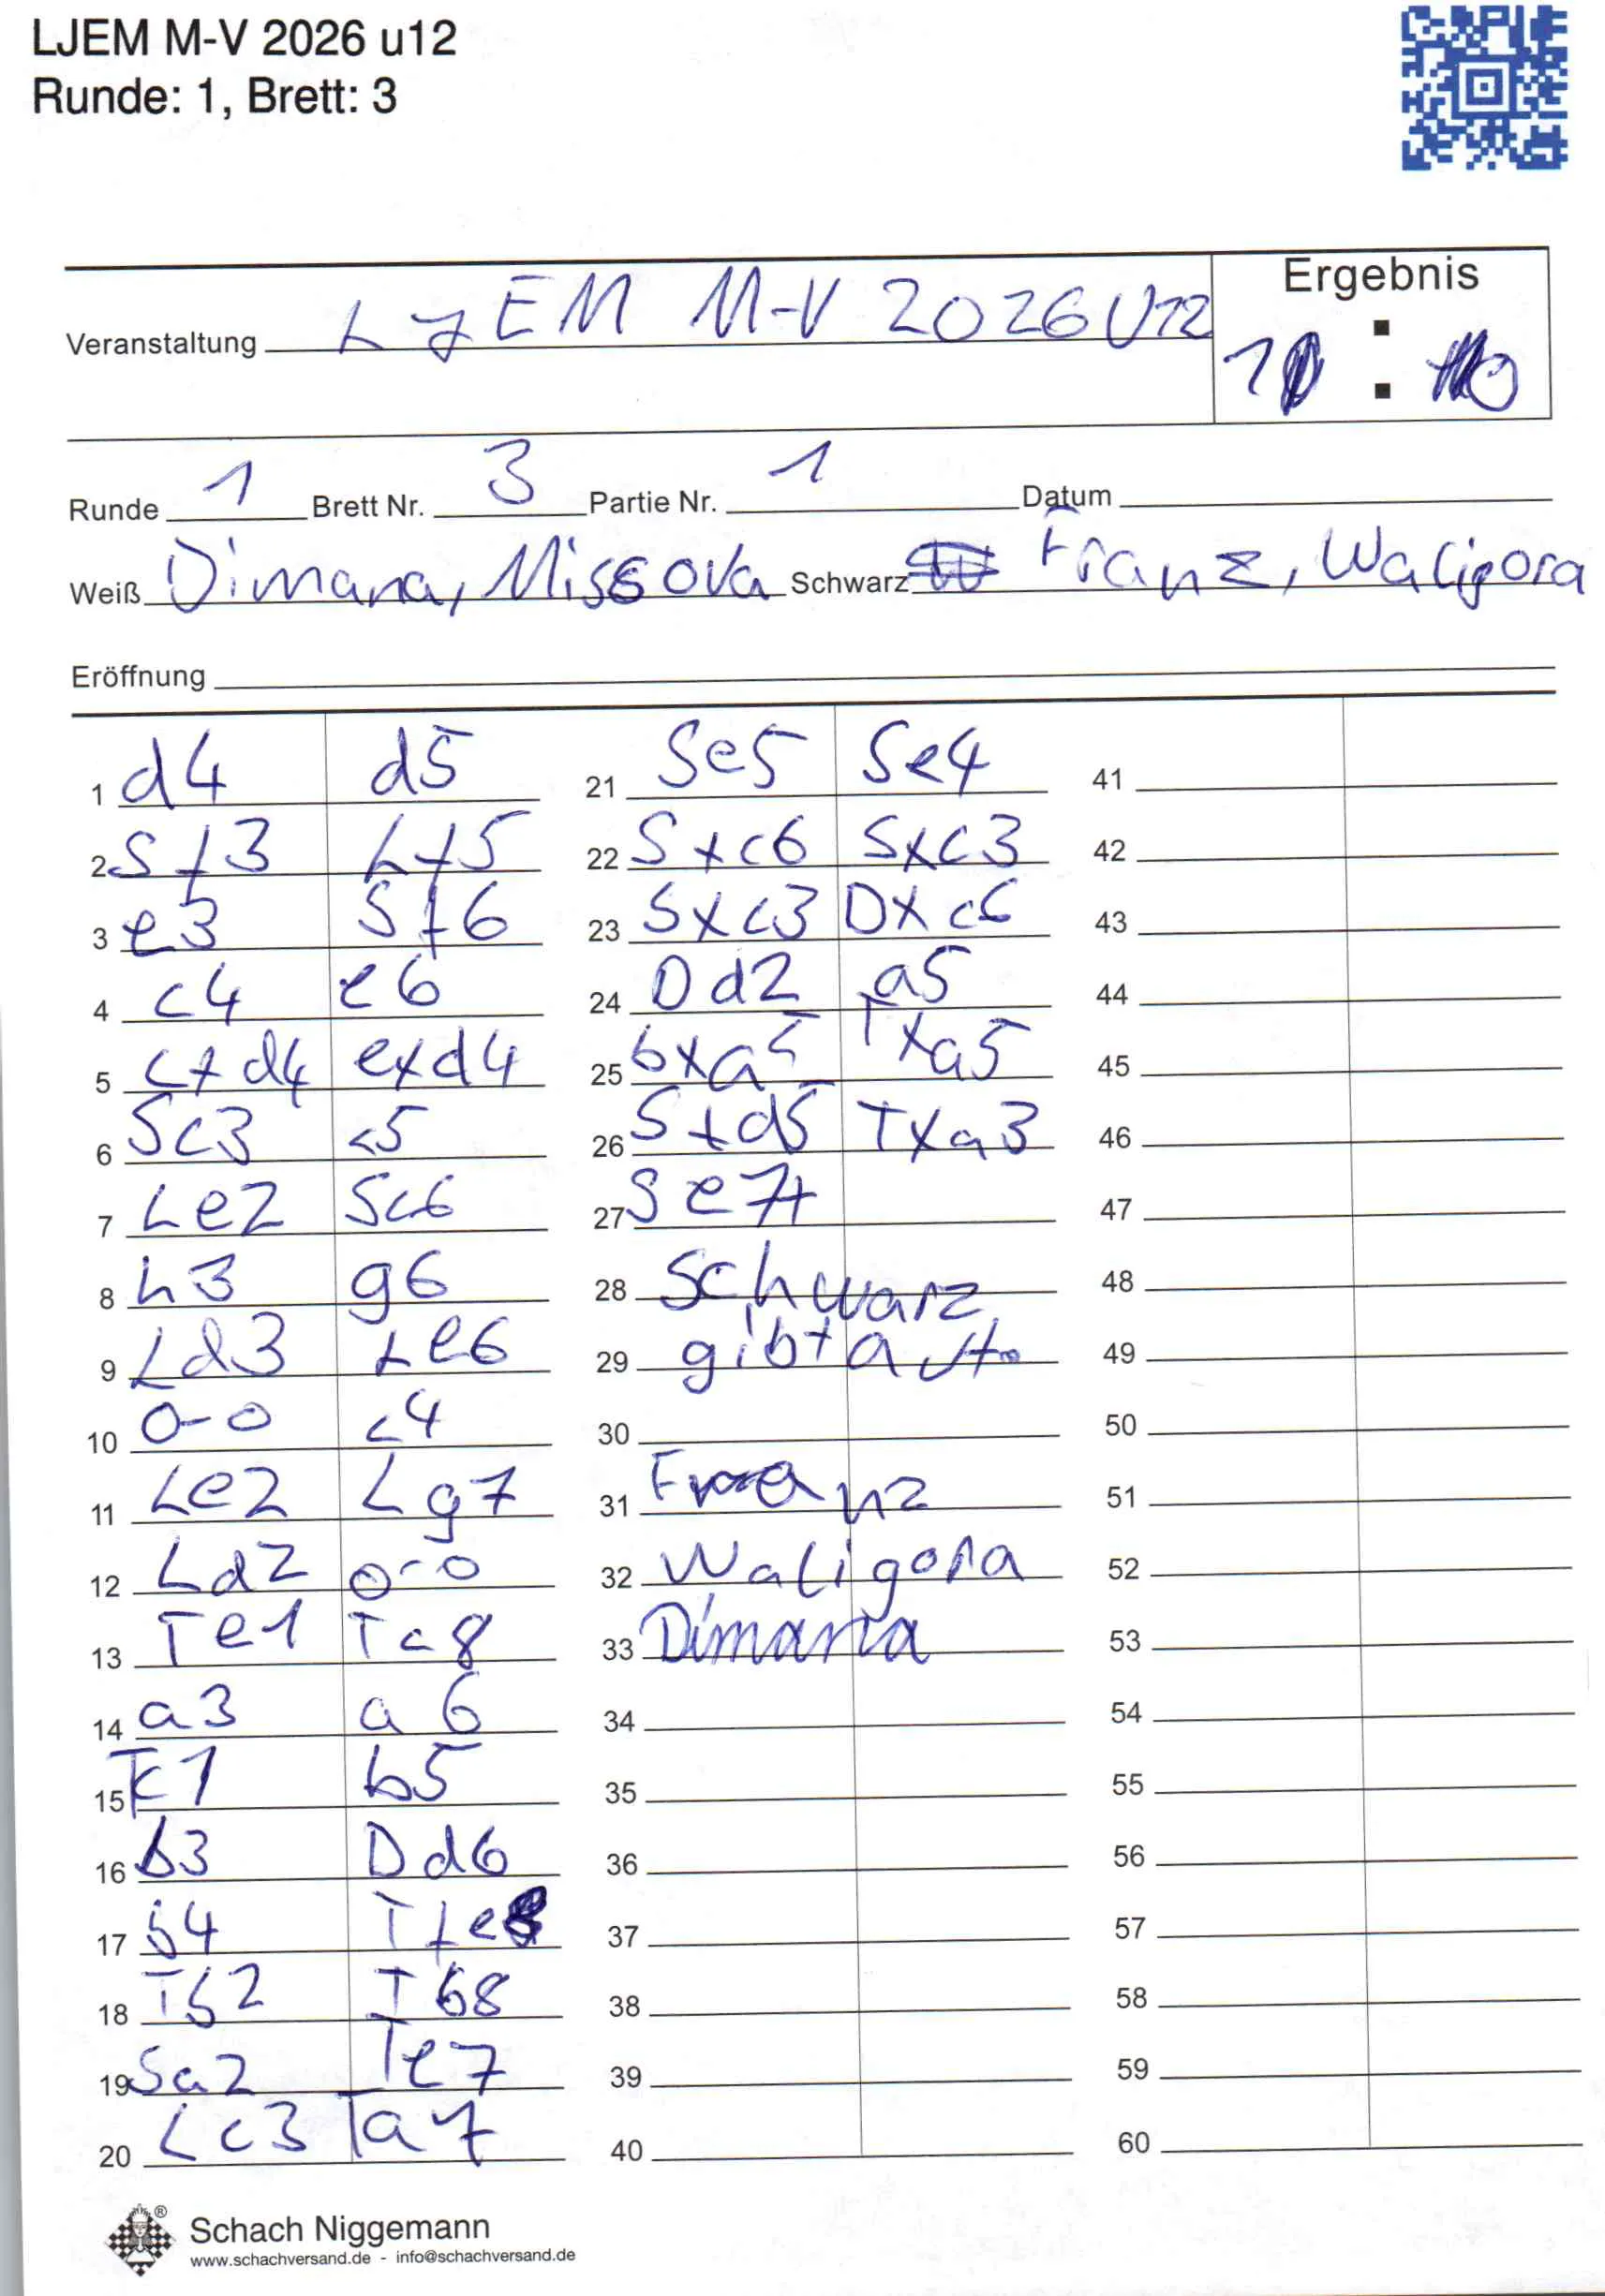 LJEM M-V 2026 u12
Runde: 1, Brett: 3
Ergebnis
Veranstaltung LJEM M-V 2026 U12
1 : 0
Runde 1 Brett Nr. 3 Partie Nr. 1 Datum
Weiß Dimana, Missova Schwarz Franz, Waligora
Eröffnung
1 d4 d5
2 Sf3 Lf5
3 e3 Sf6
4 c4 e6
5 cxd4 exd4
6 Sc3 c5
7 Le2 Sc6
8 h3 g6
9 Ld3 Le6
10 0-0 c4
11 Le2 Lg7
12 Ld2 0-0
13 Te1 Tc8
14 a3 a6
15 Tc1 b5
16 b3 Dd6
17 b4 Tfe8
18 Tb2 Tb8
19 Sa2 Te7
20 Lc3 Ta7
21 Se5 Se4
22 Sxc6 Sxc3
23 Sxc3 Dxc6
24 Dd2 a5
25 bxa5 Txa5
26 Sxd5 Txa3
27 Se7+
28 Schwarz
29 gibt auf.
30
31 Franz
32 Waligora
33 Dimana
34
35
36
37
38
39
40
41
42
43
44
45
46
47
48
49
50
51
52
53
54
55
56
57
58
59
60
®
Schach Niggemann
www.schachversand.de - info@schachversand.de